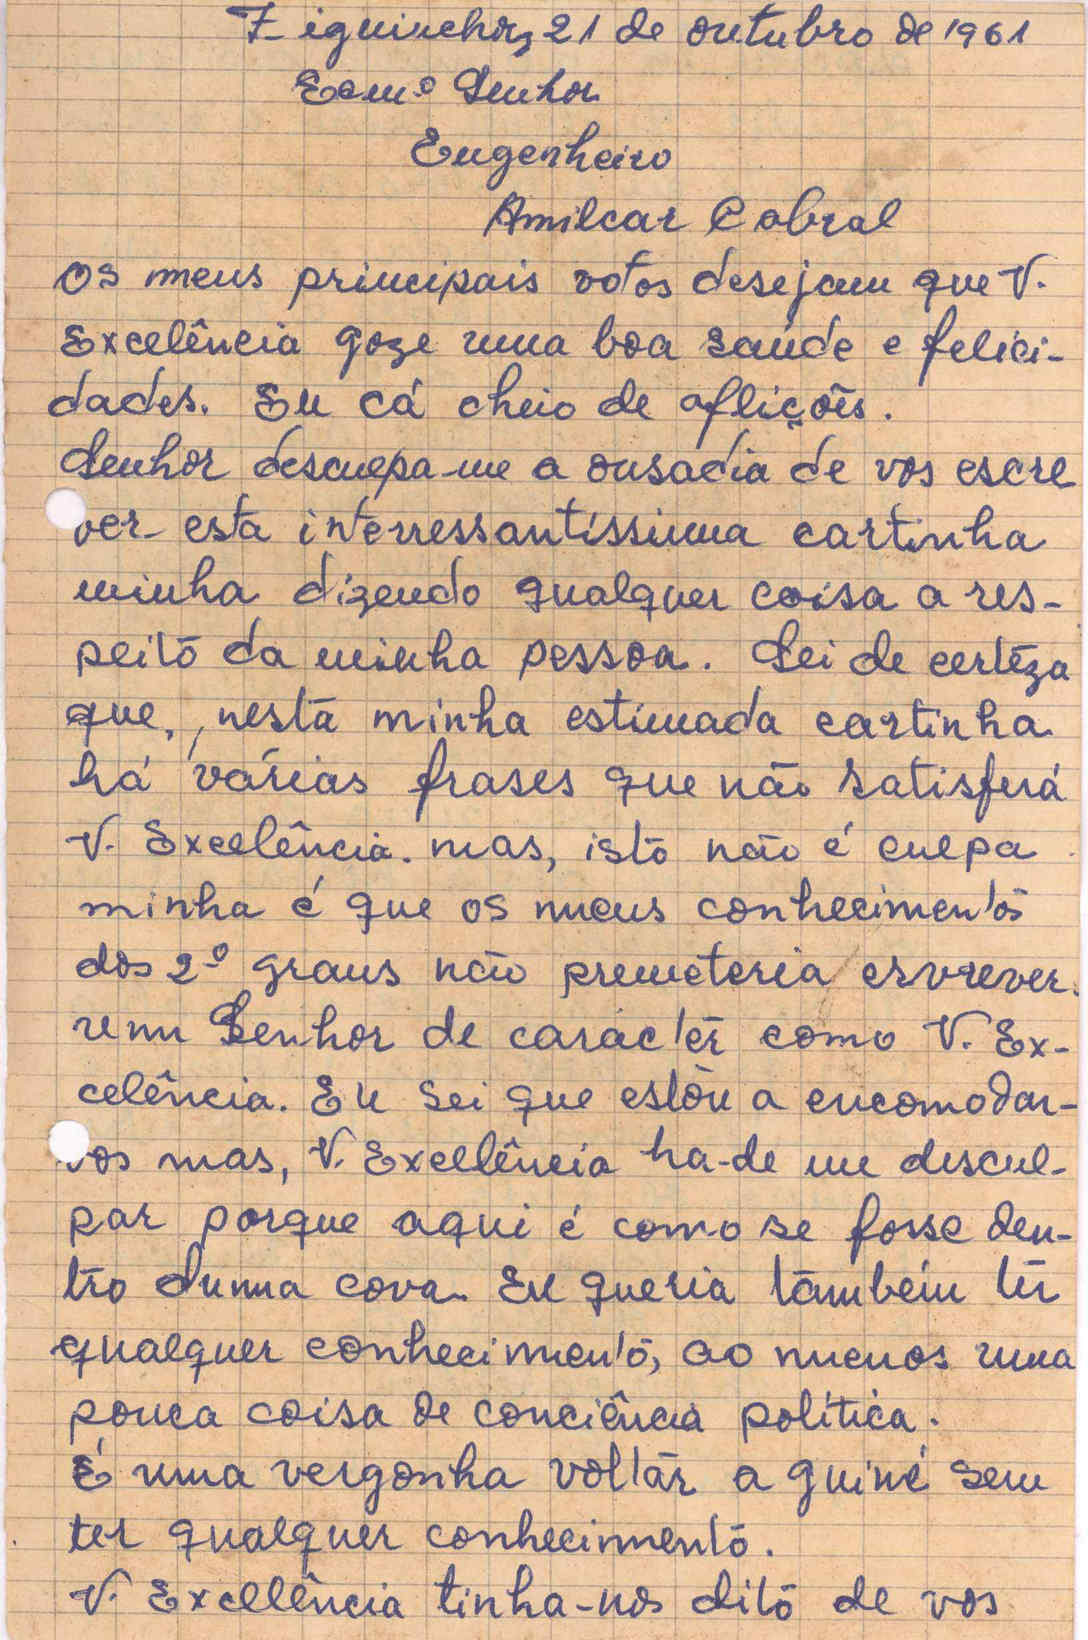 Ziguinchor, 21 de outubro de 1961
Exm.º Senhor
Engenheiro
Amilcar Cabral
Os meus principais votos desejam que V.
Excelência goze uma boa saúde e felici-
dades. Eu cá cheio de aflições.
Senhor desculpa-me a ousadia de vos escre
ver esta interressantíssima cartinha
minha dizendo qualquer coisa a res-
peito da minha pessoa. Sei de certeza
que, nesta minha estimada cartinha
há várias frases que não satisferá
V. Excelência. mas, isto não é culpa
minha é que os meus conhecimentos
dos 2º graus não premeteria esvrever
um Senhor de caracter como V. Ex-
celência. Eu sei que estou a encomodar-
vos mas, V. Excelência ha-de me descul-
par porque aqui é como se fosse den-
tro duma cova. Eu queria também ter
qualquer conhecimento, ao menos uma
pouca coisa de conciência política.
É uma vergonha voltar a guiné sem
ter qualquer conhecimento.
V. Excelência tinha-nos dito de vos